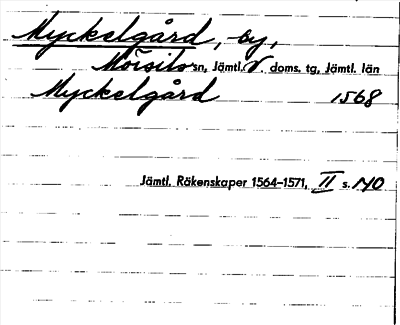 Myckelgård, by,
Mörsils sn, Jämtl. V. doms. tg, Jämtl. län
Myckelgård 1568
Jämtl. Räkenskaper 1564–1571, II s. 140